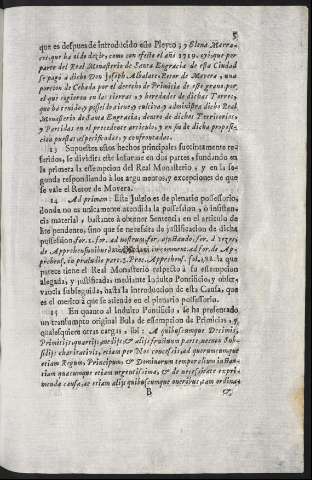 5
que es despues de introducido este Pleyto; y Elena Marra-
ces, que ha oìdo dezir, como con efecto el año 1719. cogiò por
parte del Real Monasterio de Santa Engracia de esta Ciudad
se pagò à dicho Don Joseph Albalate, Retor de Movera, una
porcion de Cebada por el derecho de Primicia de este grano, por
el que cogieron en las tierras, y heredades de dichas Torres,
que ha tenido, y posseìdo tiene, y cultiva, y administra dicho Real
Monasterio de Santa Engracia, dentro de dichos Territorios,
y Partidas en el precedente articulo, y en su de dicha proposi-
cion puestas especificadas, y confrontadas.
13 Supuestos estos hechos principales succintamente re-
feridos, se dividirà este Informe en dos partes, fundando en
la primera la essempcion del Real Monasterio, y en la se-
gunda respondiendo à los argumentos, y excepciones de que
se vale el Retor de Movera.
14 Ad primum: Este Juizio es de plenario possessorio,
donde no es unicamente atendida la possession, ò insistencia
material, y bastante à obtener Sentencia en el articulo de
lite pendente, sino que se necessita de justificacion de dicha
possession
alegada, y justificada mediante Indulto Pontificio, y obser-
vancia subseguida, hasta la introduccion de esta Causa, que
es el merito à que se atiende en el plenario possessorio.
15 En quanto al Indulto Pontificio, se ha presentado
un transumpto original Bula de essempcion de Primicias, y
qualesquiera otras cargas, ibi: A quibuscumque Decimis,
Primitijs, quartijs, medijs, & alijs fructuum parte, necnon Sub-
sidijs charitativis, etiam per Nos concessis, ad quorumcumque
etiam Regum, Principum, & Dominorum temporalium instan-
tiam quacumque etiam urgentissima, & de necessitate expri-
menda causa, ac etiam alijs quibuscumque oneribus tam ordina-
B